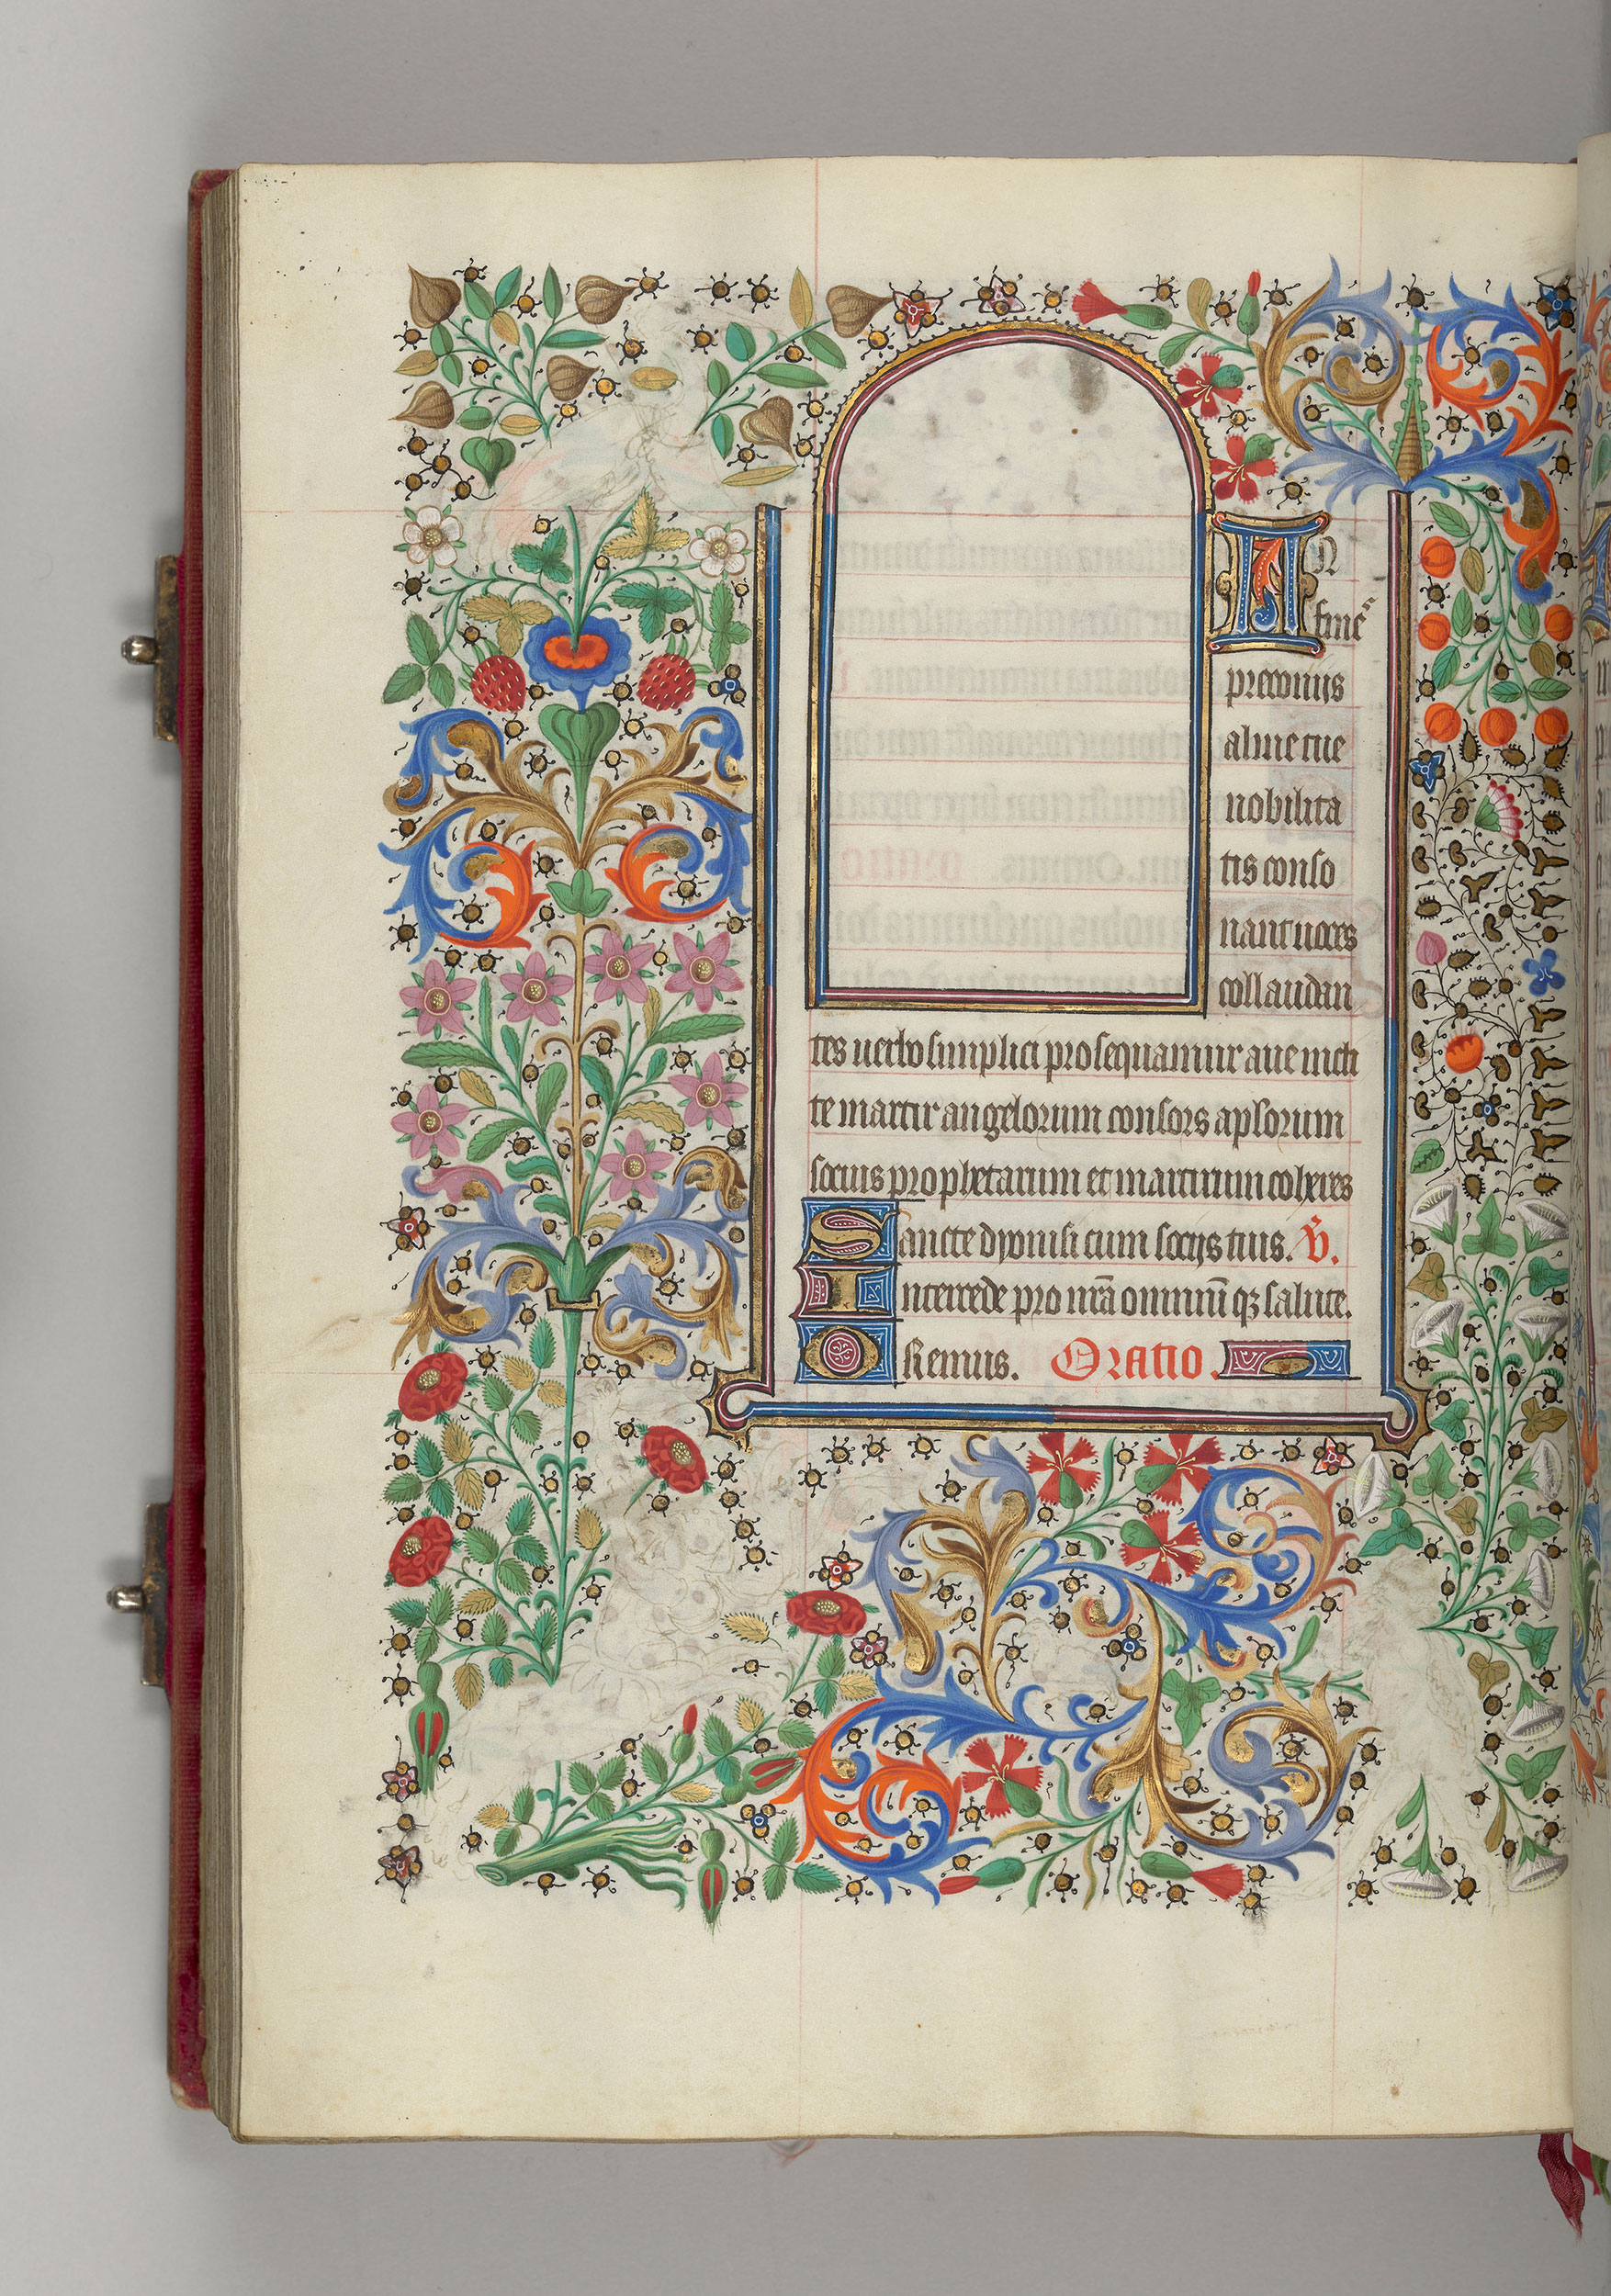 In
finē
preconiis
alme tue
nobilita
tis conso
nant uoces
collaudan
tes uerbo simplici prosequamur aue incli
te martir angelorum consors aplorum
socius prophetarum et martirum coheres
Sancte dyonisi cum sociis tuis. V̄.
Intercede pro nrā omniū qȝ salute.
Oremus. Oratio.